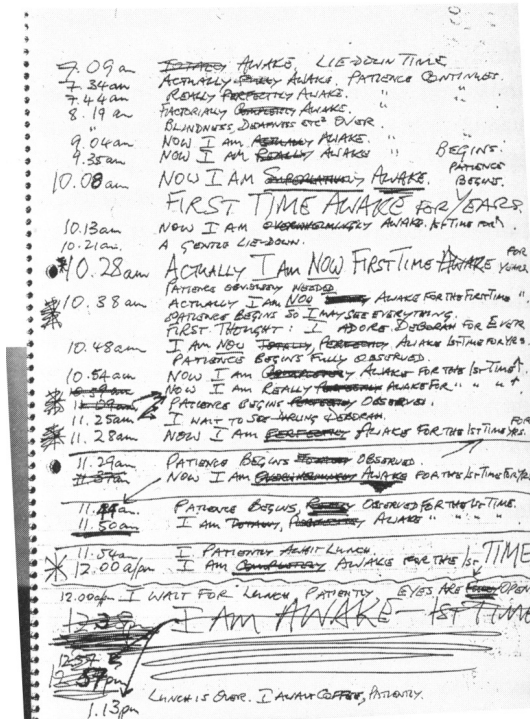 7.09am TOTALLY AWAKE, LIE-DOWN TIME.
7.34am ACTUALLY FULLY AWAKE, PATIENCE CONTINUES.
7.44am REALLY PERFECTLY AWAKE. " "
8.19am FACTORIALLY COMPLETELY AWAKE.
" BLINDNESS, DEAFNESS ETC² OVER
9.04am NOW I AM ACTUALLY AWAKE. "
9.35am NOW I AM REALLY AWAKE " BEGINS.
PATIENCE
10.08am NOW I AM SUPERLATIVELY AWAKE. BEGINS.
FIRST TIME AWAKE FOR YEARS.
10.13am NOW I AM OVERWHELMINGLY AWAKE. 1st TIME FOR ^
10.21am. A GENTLE LIE-DOWN.
10.28am ACTUALLY I AM NOW FIRST TIME AWAKE FOR YEARS
PATIENCE OBVIOUSLY NEEDED
10.38am ACTUALLY I AM NOW AWAKE FOR THE FIRST TIME "
PATIENCE BEGINS SO I MAY SEE EVERYTHING.
FIRST THOUGHT: I ADORE DEBORAH FOR EVER.
10.48am I AM NOW TOTALLY, PERFECTLY AWAKE 1st TIME FOR YRS.
PATIENCE BEGINS FULLY OBSERVED.
10.54am NOW I AM COMPLETELY AWAKE FOR THE 1st TIME ↑.
10.59am NOW I AM REALLY PERFECTLY AWAKE FOR " " " ↑
11.09am PATIENCE BEGINS PERFECTLY OBSERVED.
11.25am I WAIT TO SEE DARLING DEBORAH.
11.28am NOW I AM PERFECTLY AWAKE FOR THE 1st TIME FOR YRS.
11.29am PATIENCE BEGINS OBSERVED.
11.37am NOW I AM AWAKE FOR THE 1st TIME FOR YRS
11.44am. PATIENCE BEGINS, OBSERVED FOR THE 1st TIME.
11.50am I AM TOTALLY, PERFECTLY AWAKE " " "
11.54am. I PATIENTLY AWAIT LUNCH.
12.00a/pm I AM COMPLETELY AWAKE FOR THE 1st TIME
12.00a/pm I WAIT FOR LUNCH PATIENTLY EYES ARE OPEN
12.38 I AM AWAKE – 1ST TIME
12.57
12.57pm
1.13pm LUNCH IS OVER. I AWAIT COFFEE, PATIENTLY.